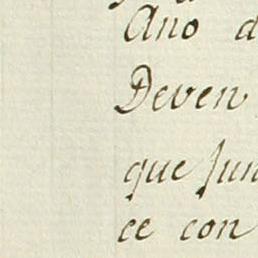 Ano d
Deven
que Jun
ce con